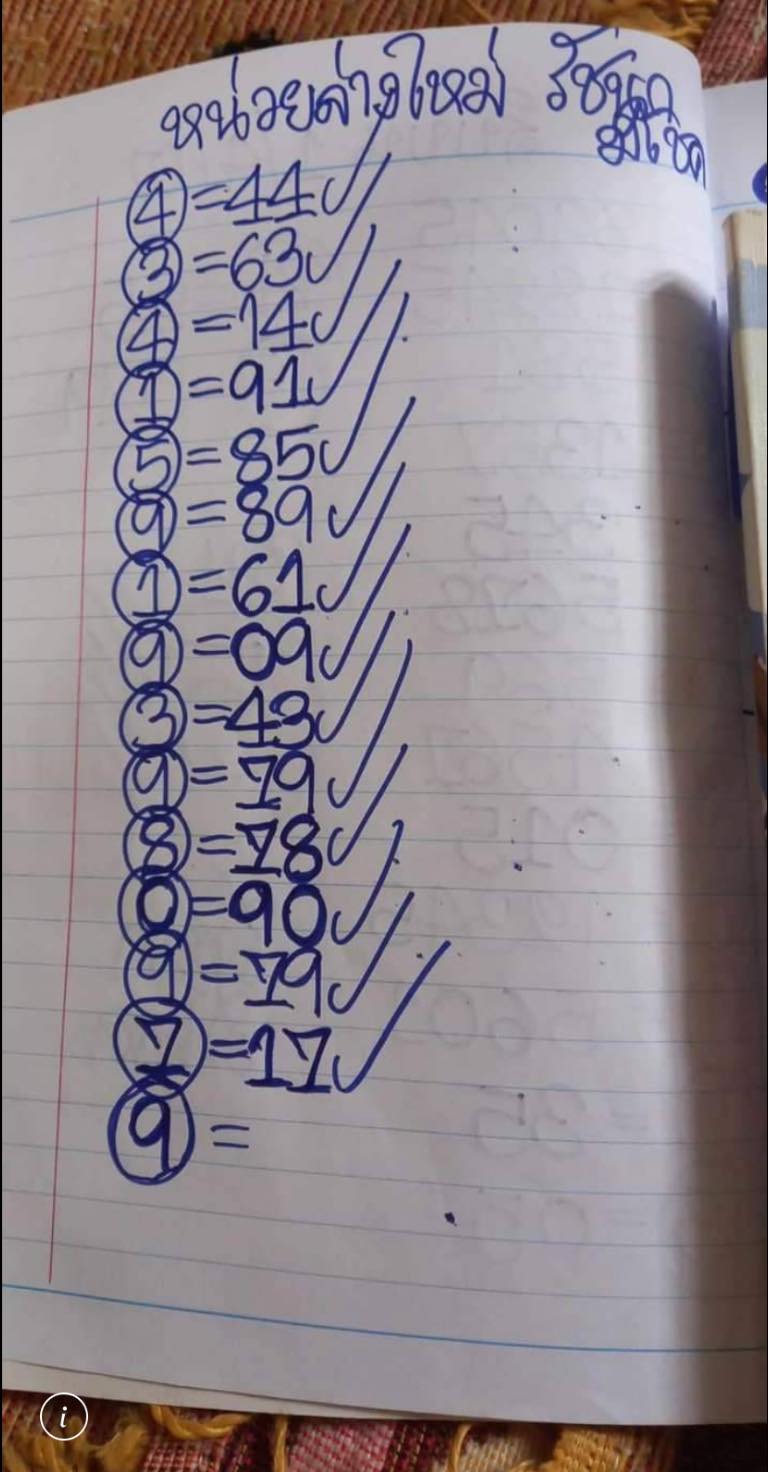 หน่วยล่างใหม่ รัชนก
มีโชค
4 = 44 ✓
3 = 63 ✓
4 = 14 ✓
1 = 91 ✓
5 = 85 ✓
9 = 89 ✓
1 = 61 ✓
9 = 09 ✓
3 = 43 ✓
9 = 79 ✓
8 = 78 ✓
0 = 90 ✓
9 = 79 ✓
7 = 17 ✓
9 =